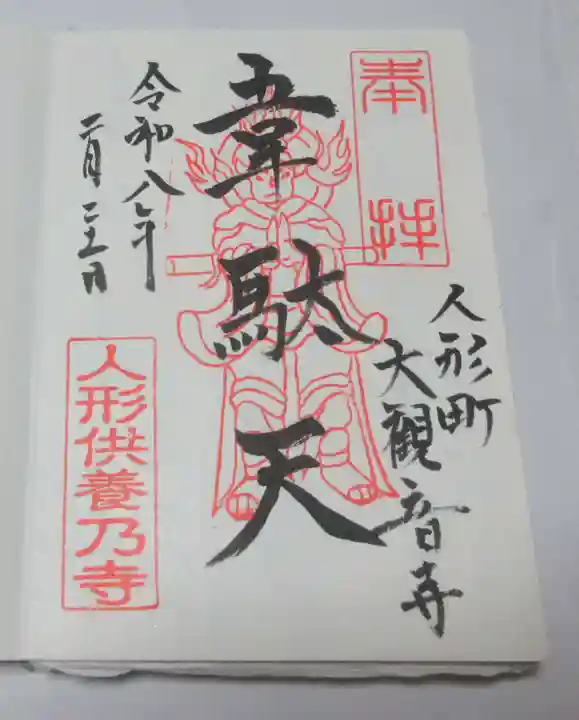 奉拝
人形町
大観音寺
韋駄天
令和八年
二月二十三日
人形供養乃寺